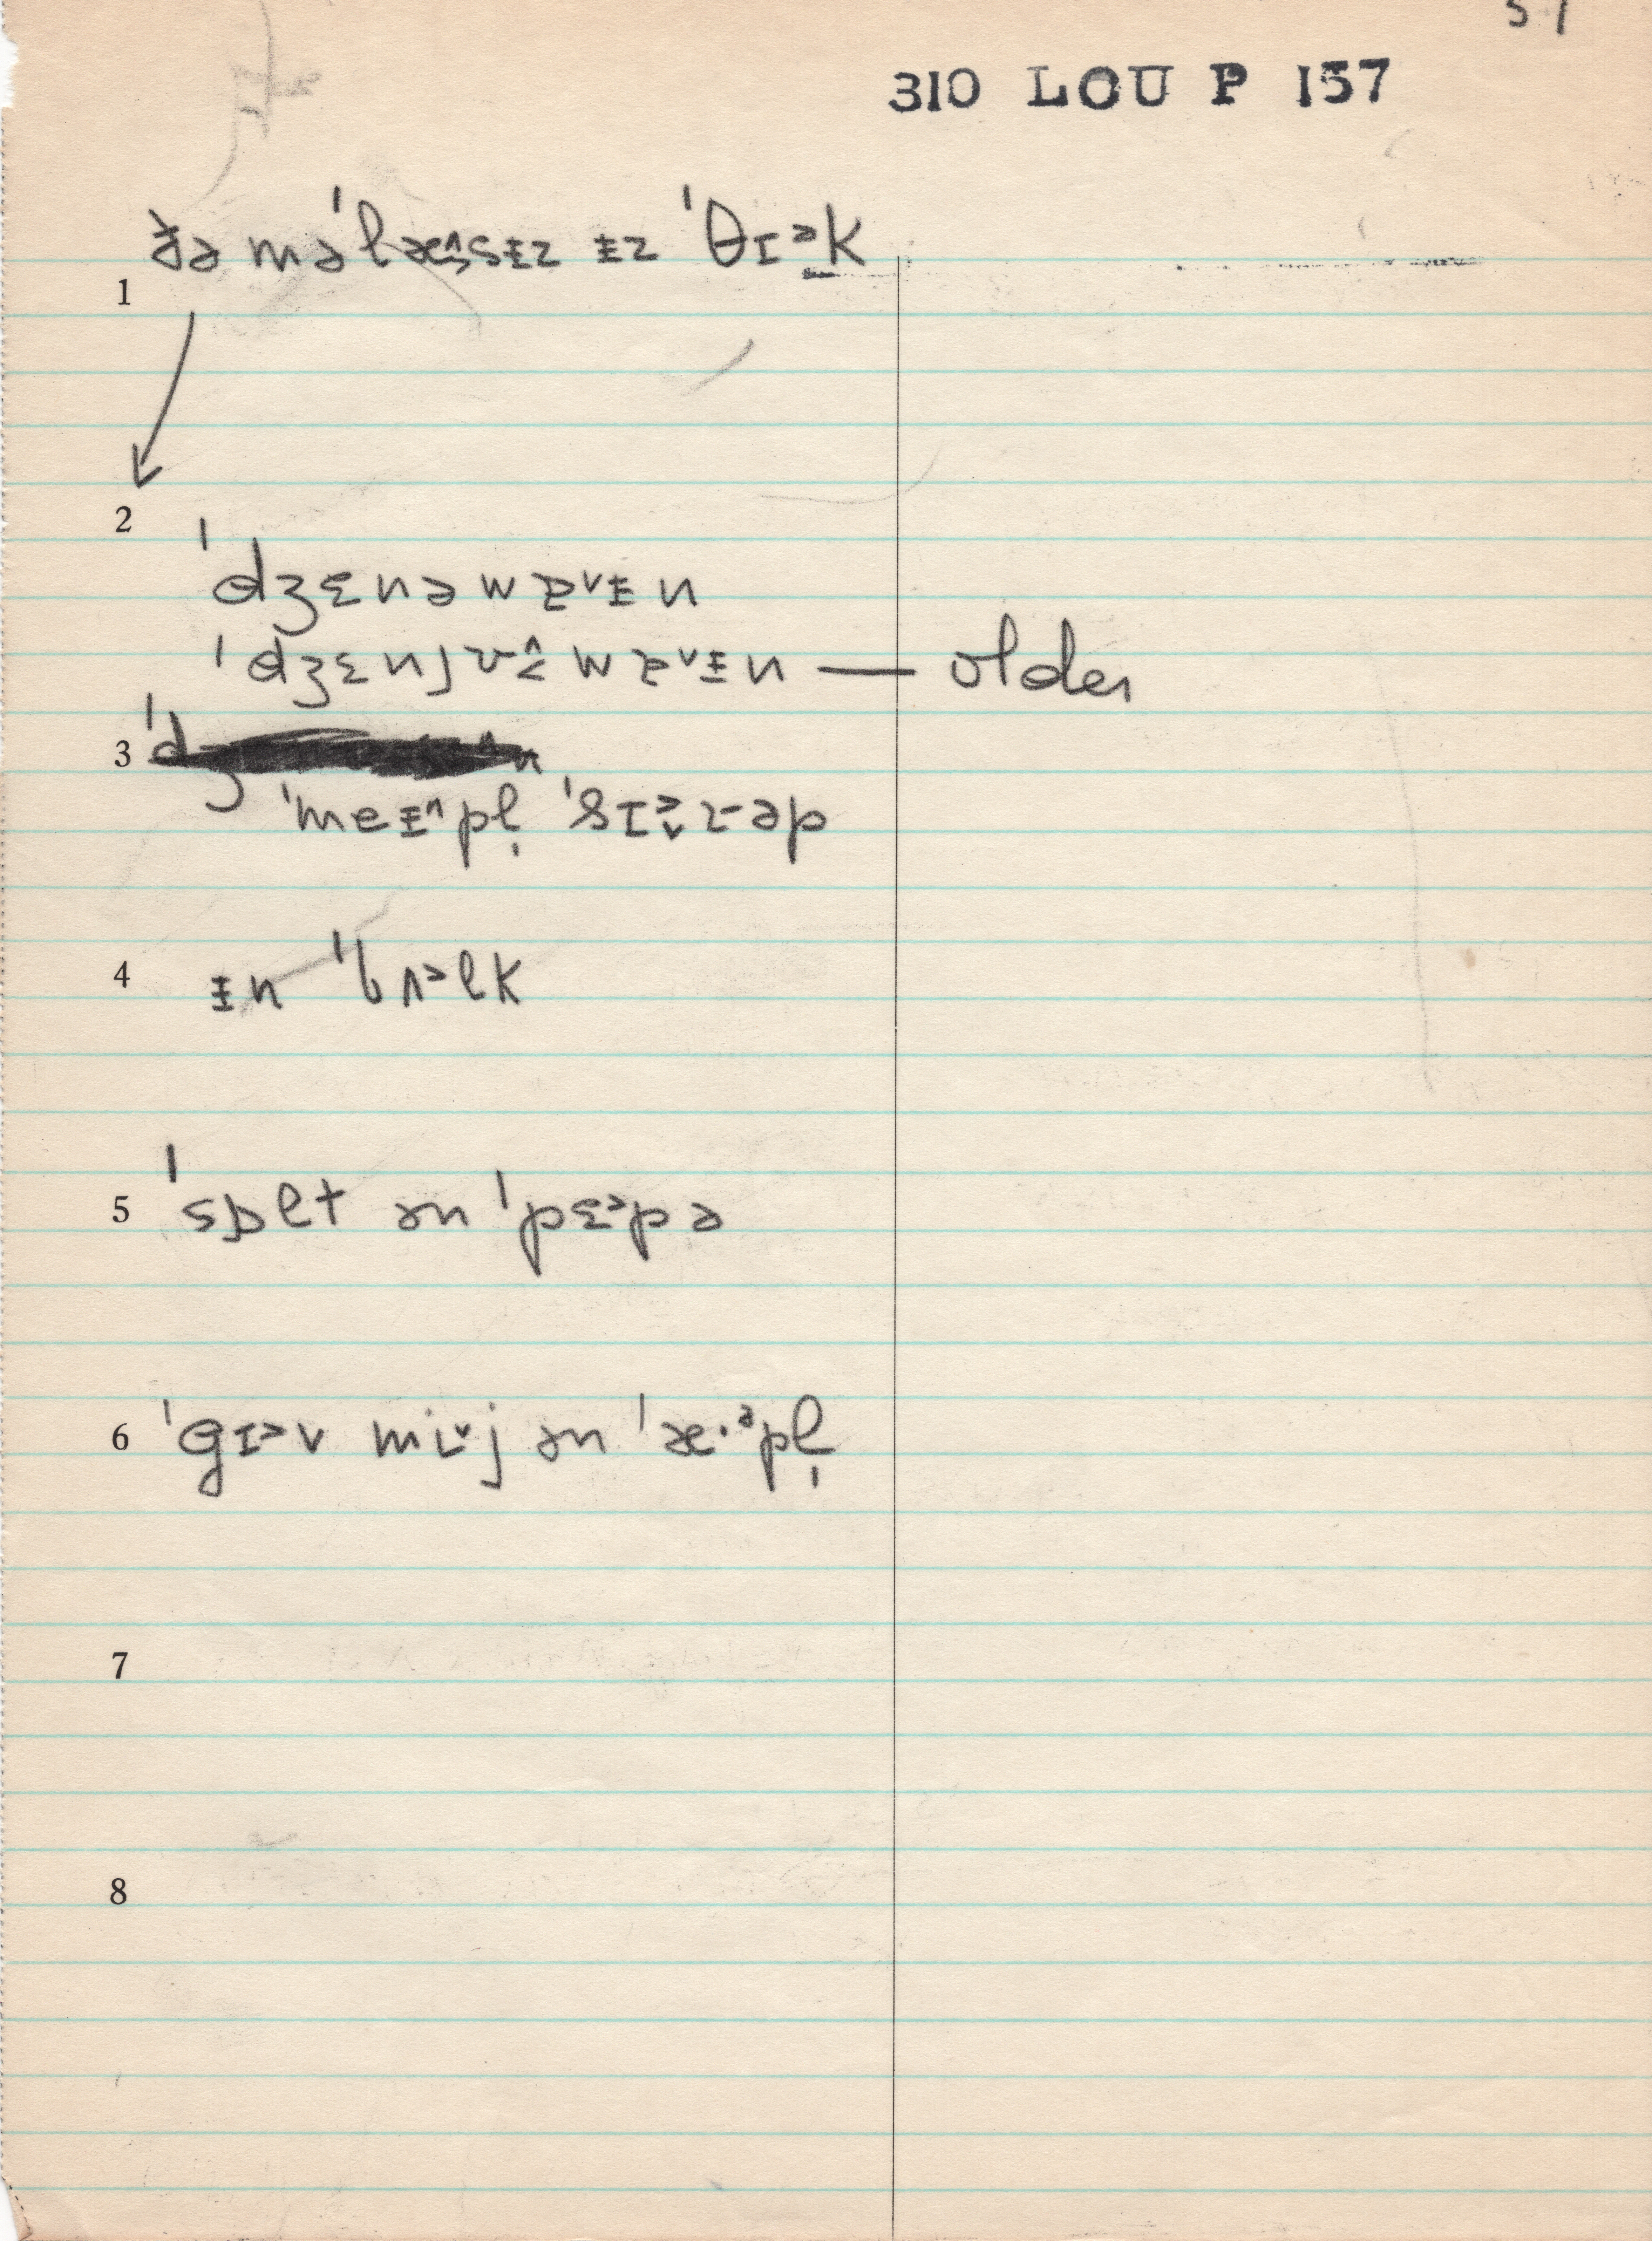 310 LOU P 157
1 ðə məˈlæ^sɨz ɨz ˈθɪᵊk
2
ˈdʒɛnəwɐᵛɨn
ˈdʒɛnjʊ^wɐᵛɨn — older
3
ˈmeɨ^pl̩ ˈsɪᵊɹəp
4 ɨn ˈbʌᵊlk
5 ˈsɒlt ən ˈpɛᵊpə
6 ˈgɪᵊv miᵛj ən ˈæ·ᵊpl̩
7
8